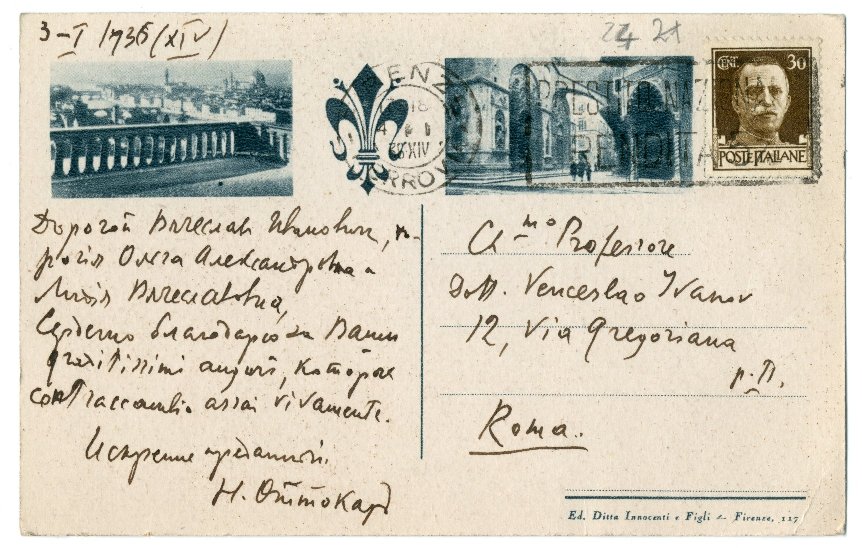 3-I 1936 (XIV)
24 21
FERROVIA
18
36 XIV
CENT 30
POSTE ITALIANE
Дорогой Вячеслав Иванович, до-
рогия Ольга Александровна и
Лидия Вячеславовна,
Сердечно благодарю за Ваши
graditissimi auguri, которые
contraccambio assai vivamente.
Искренне преданный
Н. Оттокар
Ch.mo Professore
Dott. Venceslao Ivanov
12, Via Gregoriana
p. II.
Roma.
Ed. Ditta Innocenti e Figli - Firenze, 127